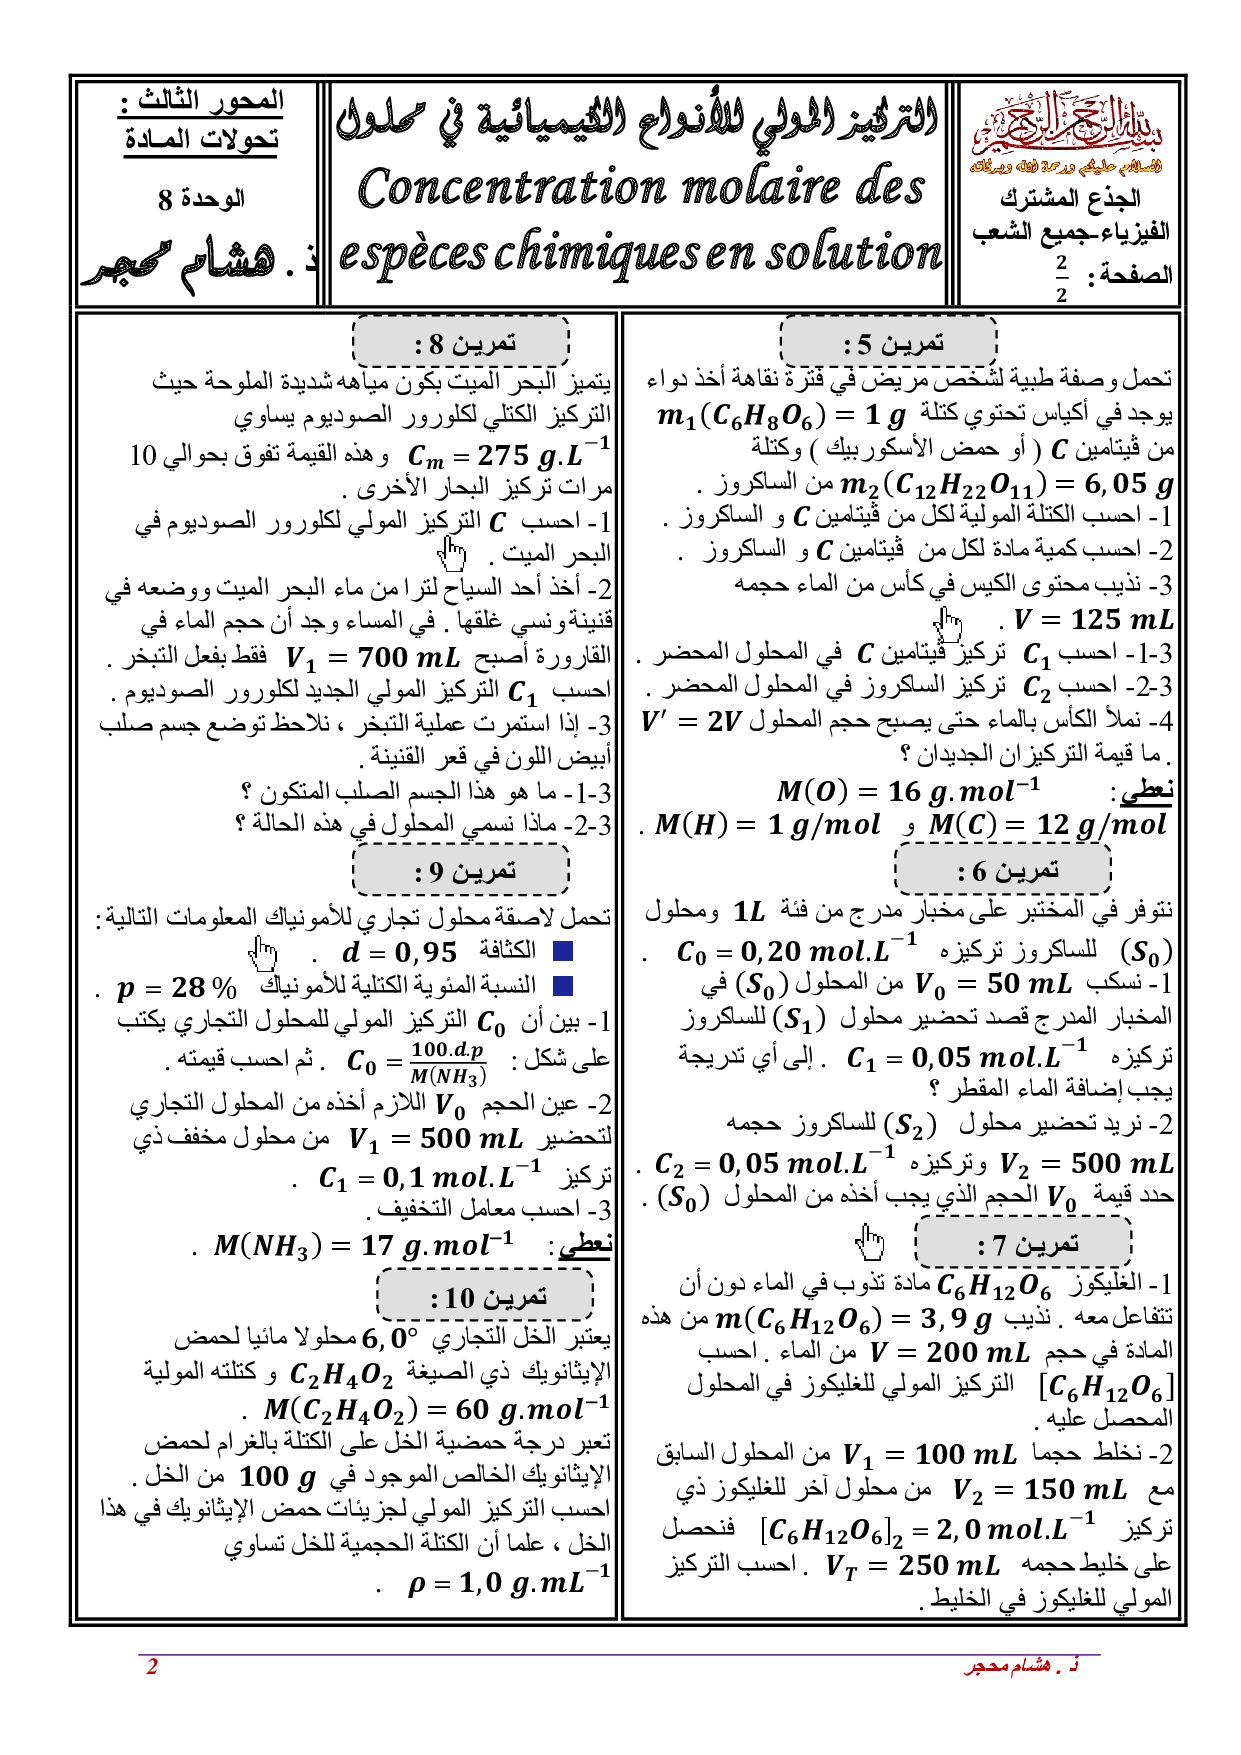 بسم الله الرحمن الرحيم
السلام عليكم ورحمة الله وبركاته
الجذع المشترك
الفيزياء-جميع الشعب
الصفحة : 2/2
التركيز المولي للأنواع الكيميائية في محلول
Concentration molaire des
espèces chimiques en solution
المحور الثالث :
تحولات المـادة
الوحدة 8
ذ . هشام محجر
تمريـن 5 :
تحمل وصفة طبية لشخص مريض في فترة نقاهة أخذ دواء
يوجد في أكياس تحتوي كتلة m₁(C₆H₈O₆) = 1 g
من ڤيتامين C ( أو حمض الأسكوربيك ) وكتلة
m₂(C₁₂H₂₂O₁₁) = 6,05 g من الساكروز .
1- احسب الكتلة المولية لكل من ڤيتامين C و الساكروز .
2- احسب كمية مادة لكل من ڤيتامين C و الساكروز .
3- نذيب محتوى الكيس في كأس من الماء حجمه
V = 125 mL .
3-1- احسب C₁ تركيز ڤيتامين C في المحلول المحضر .
3-2- احسب C₂ تركيز الساكروز في المحلول المحضر .
4- نملأ الكأس بالماء حتى يصبح حجم المحلول V′ = 2V
. ما قيمة التركيزان الجديدان ؟
نعطي : M(O) = 16 g.mol⁻¹
M(C) = 12 g/mol و M(H) = 1 g/mol .
تمريـن 6 :
نتوفر في المختبر على مخبار مدرج من فئة 1L ومحلول
(S₀) للساكروز تركيزه C₀ = 0,20 mol.L⁻¹ .
1- نسكب V₀ = 50 mL من المحلول (S₀) في
المخبار المدرج قصد تحضير محلول (S₁) للساكروز
تركيزه C₁ = 0,05 mol.L⁻¹ . إلى أي تدريجة
يجب إضافة الماء المقطر ؟
2- نريد تحضير محلول (S₂) للساكروز حجمه
V₂ = 500 mL وتركيزه C₂ = 0,05 mol.L⁻¹ .
حدد قيمة V₀ الحجم الذي يجب أخذه من المحلول (S₀) .
تمريـن 7 :
1- الغليكوز C₆H₁₂O₆ مادة تذوب في الماء دون أن
تتفاعل معه . نذيب m(C₆H₁₂O₆) = 3,9 g من هذه
المادة في حجم V = 200 mL من الماء . احسب
[C₆H₁₂O₆] التركيز المولي للغليكوز في المحلول
المحصل عليه .
2- نخلط حجما V₁ = 100 mL من المحلول السابق
مع V₂ = 150 mL من محلول آخر للغليكوز ذي
تركيز [C₆H₁₂O₆]₂ = 2,0 mol.L⁻¹ فنحصل
على خليط حجمه V_T = 250 mL . احسب التركيز
المولي للغليكوز في الخليط .
تمريـن 8 :
يتميز البحر الميت بكون مياهه شديدة الملوحة حيث
التركيز الكتلي لكلورور الصوديوم يساوي
C_m = 275 g.L⁻¹ وهذه القيمة تفوق بحوالي 10
مرات تركيز البحار الأخرى .
1- احسب C التركيز المولي لكلورور الصوديوم في
البحر الميت .
2- أخذ أحد السياح لترا من ماء البحر الميت ووضعه في
قنينة ونسي غلقها . في المساء وجد أن حجم الماء في
القارورة أصبح V₁ = 700 mL فقط بفعل التبخر .
احسب C₁ التركيز المولي الجديد لكلورور الصوديوم .
3- إذا استمرت عملية التبخر ، نلاحظ توضع جسم صلب
أبيض اللون في قعر القنينة .
3-1- ما هو هذا الجسم الصلب المتكون ؟
3-2- ماذا نسمي المحلول في هذه الحالة ؟
تمريـن 9 :
تحمل لاصقة محلول تجاري للأمونياك المعلومات التالية :
■ الكثافة d = 0,95 .
■ النسبة المئوية الكتلية للأمونياك p = 28 % .
1- بين أن C₀ التركيز المولي للمحلول التجاري يكتب
على شكل : C₀ = 100.d.p/M(NH₃) . ثم احسب قيمته .
2- عين الحجم V₀ اللازم أخذه من المحلول التجاري
لتحضير V₁ = 500 mL من محلول مخفف ذي
تركيز C₁ = 0,1 mol.L⁻¹ .
3- احسب معامل التخفيف .
نعطي : M(NH₃) = 17 g.mol⁻¹ .
تمريـن 10 :
يعتبر الخل التجاري 6,0° محلولا مائيا لحمض
الإيثانويك ذي الصيغة C₂H₄O₂ و كتلته المولية
M(C₂H₄O₂) = 60 g.mol⁻¹ .
تعبر درجة حمضية الخل على الكتلة بالغرام لحمض
الإيثانويك الخالص الموجود في 100 g من الخل .
احسب التركيز المولي لجزيئات حمض الإيثانويك في هذا
الخل ، علما أن الكتلة الحجمية للخل تساوي
ρ = 1,0 g.mL⁻¹ .
ذ . هشام محجر
2